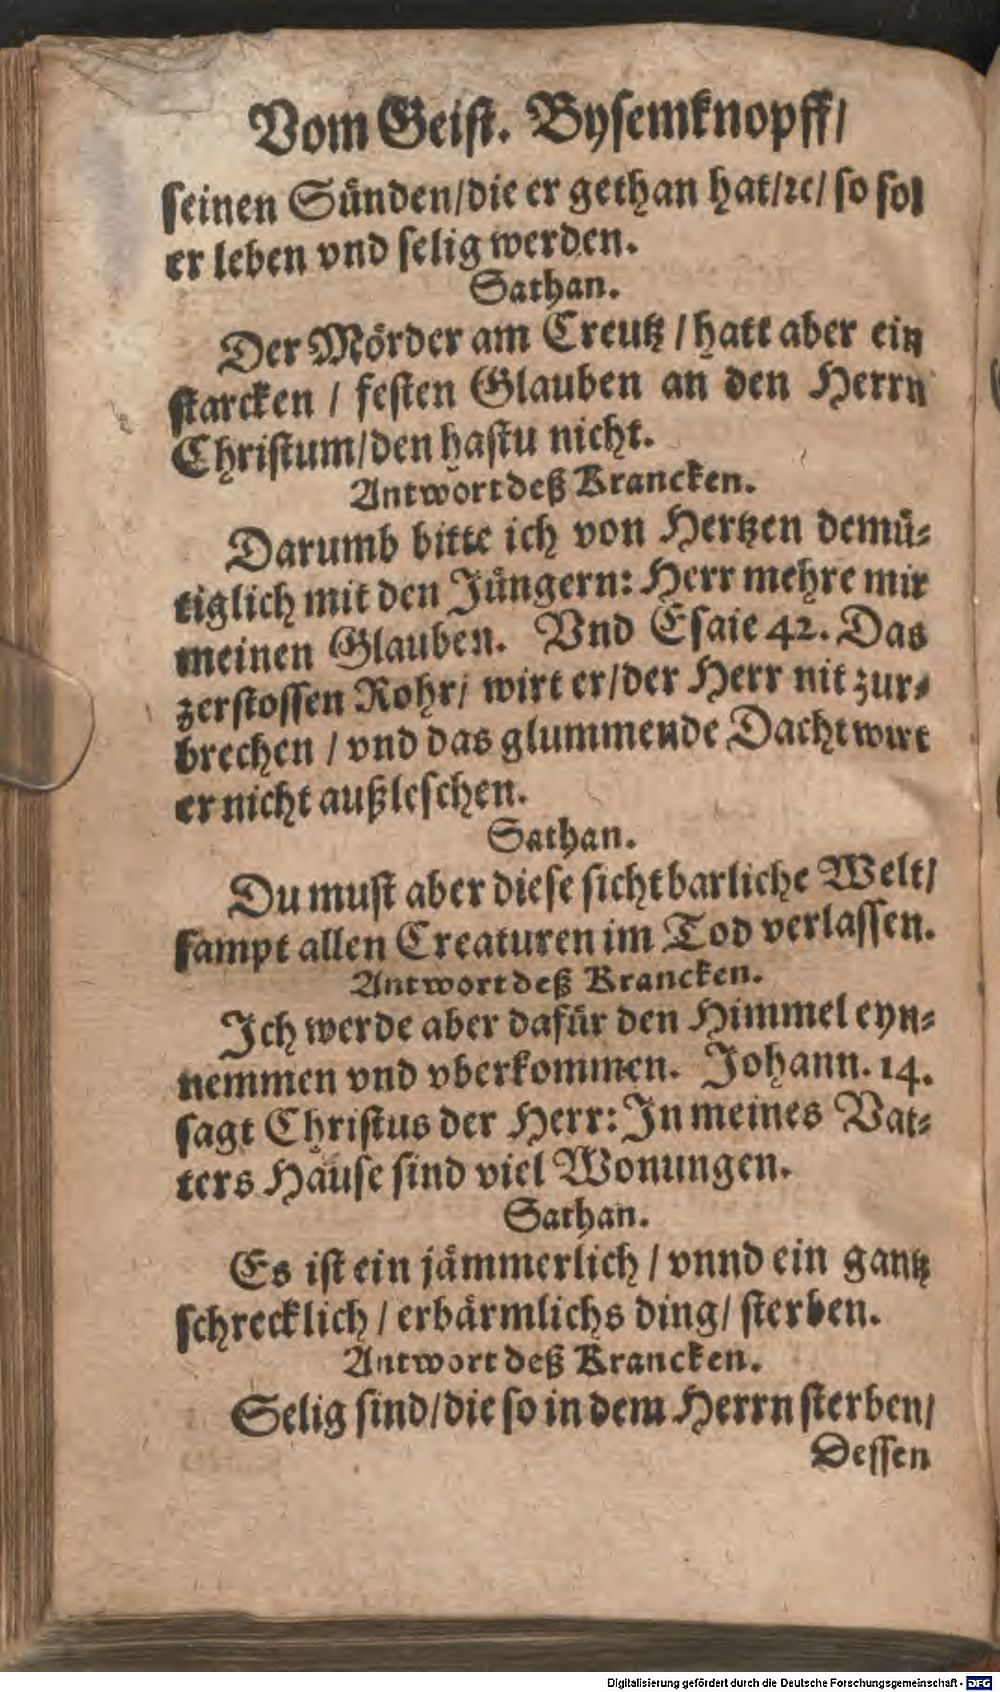 Vom Geist. Bysemknopff/
seinen Sünden/die er gethan hat/ꝛc/ so sol
er leben vnd selig werden.
Sathan.
Der Mörder am Creutz / hatt aber ein
starcken / festen Glauben an den Herrn
Christum/den hastu nicht.
Antwort deß Krancken.
Darumb bitte ich von Hertzen demü-
tiglich mit den Jüngern: Herr mehre mir
meinen Glauben. Vnd Esaie 42. Das
zerstossen Rohr/ wirt er/der Herr nit zur-
brechen / vnd das glummende Dacht wirt
er nicht außleschen.
Sathan.
Du must aber diese sichtbarliche Welt/
sampt allen Creaturen im Tod verlassen.
Antwort deß Krancken.
Ich werde aber dafür den Himmel eyn-
nemmen vnd vberkommen. Johann. 14.
sagt Christus der Herr: In meines Vat-
ters Hause sind viel Wonungen.
Sathan.
Es ist ein jämmerlich / vnnd ein gantz
schrecklich / erbärmlichs ding/ sterben.
Antwort deß Krancken.
Selig sind/die so in dem Herrn sterben/
Dessen
Digitalisierung gefördert durch die Deutsche Forschungsgemeinschaft - DFG